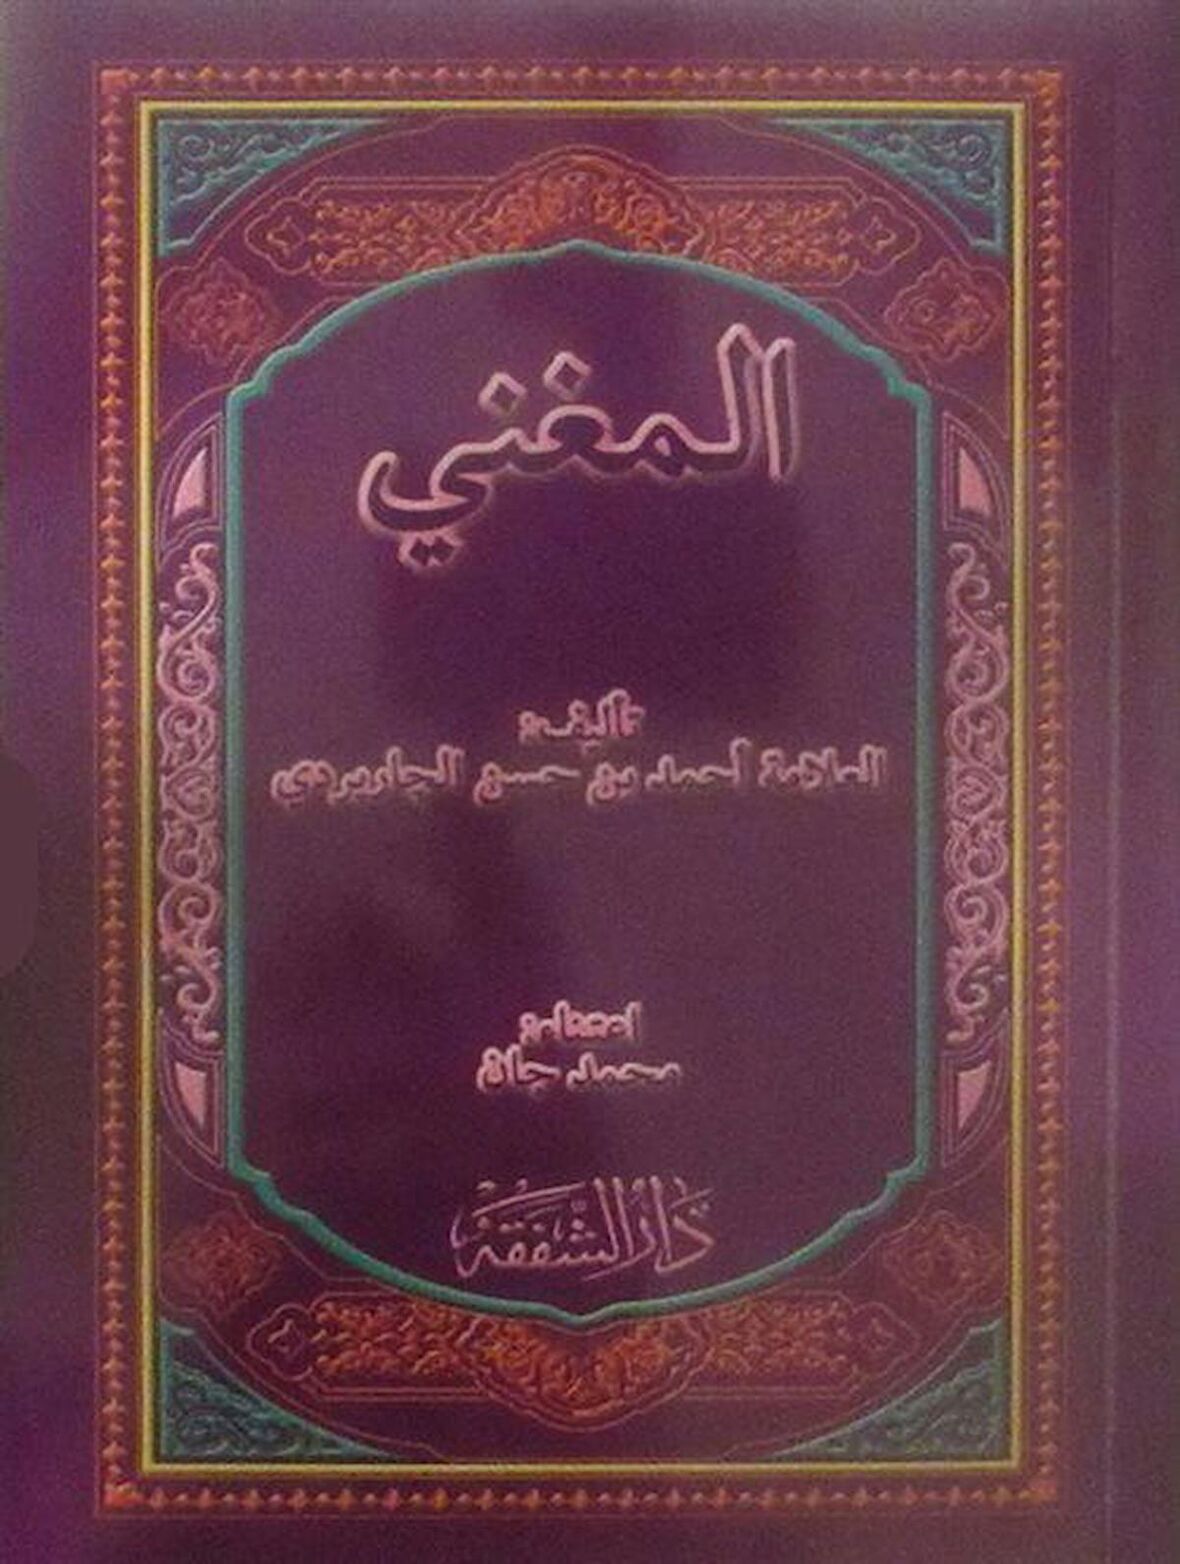 المغني
تأليف
العلامة أحمد بن حسن الجاربردي
محمد جان
دار الشفقة